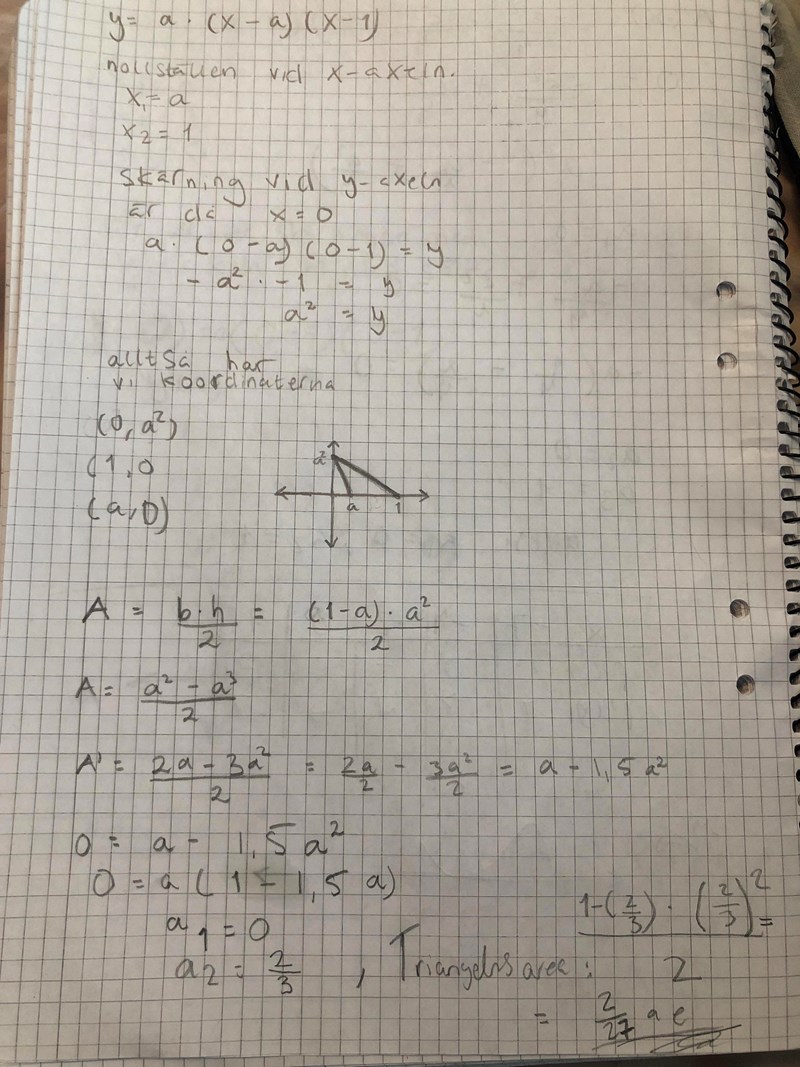 y = a · (x - a) (x - 1)
nollställen vid x-axeln.
x₁ = a
x₂ = 1
Skärning vid y-axeln
är då x = 0
a · (0 - a) (0 - 1) = y
- a² · -1 = y
a² = y
alltså har
vi koordinaterna
(0, a²)
(1, 0
(a, 0)
a²
a 1
A = b·h/2 = (1-a) · a²/2
A = a² - a³/2
A' = 2a - 3a²/2 = 2a/2 - 3a²/2 = a - 1,5 a²
0 = a - 1,5 a²
0 = a (1 - 1,5 a)
a₁ = 0
a₂ = 2/3 , Triangelns area: 1-(2/3) · (2/3)²/2 =
= 2/27 a e